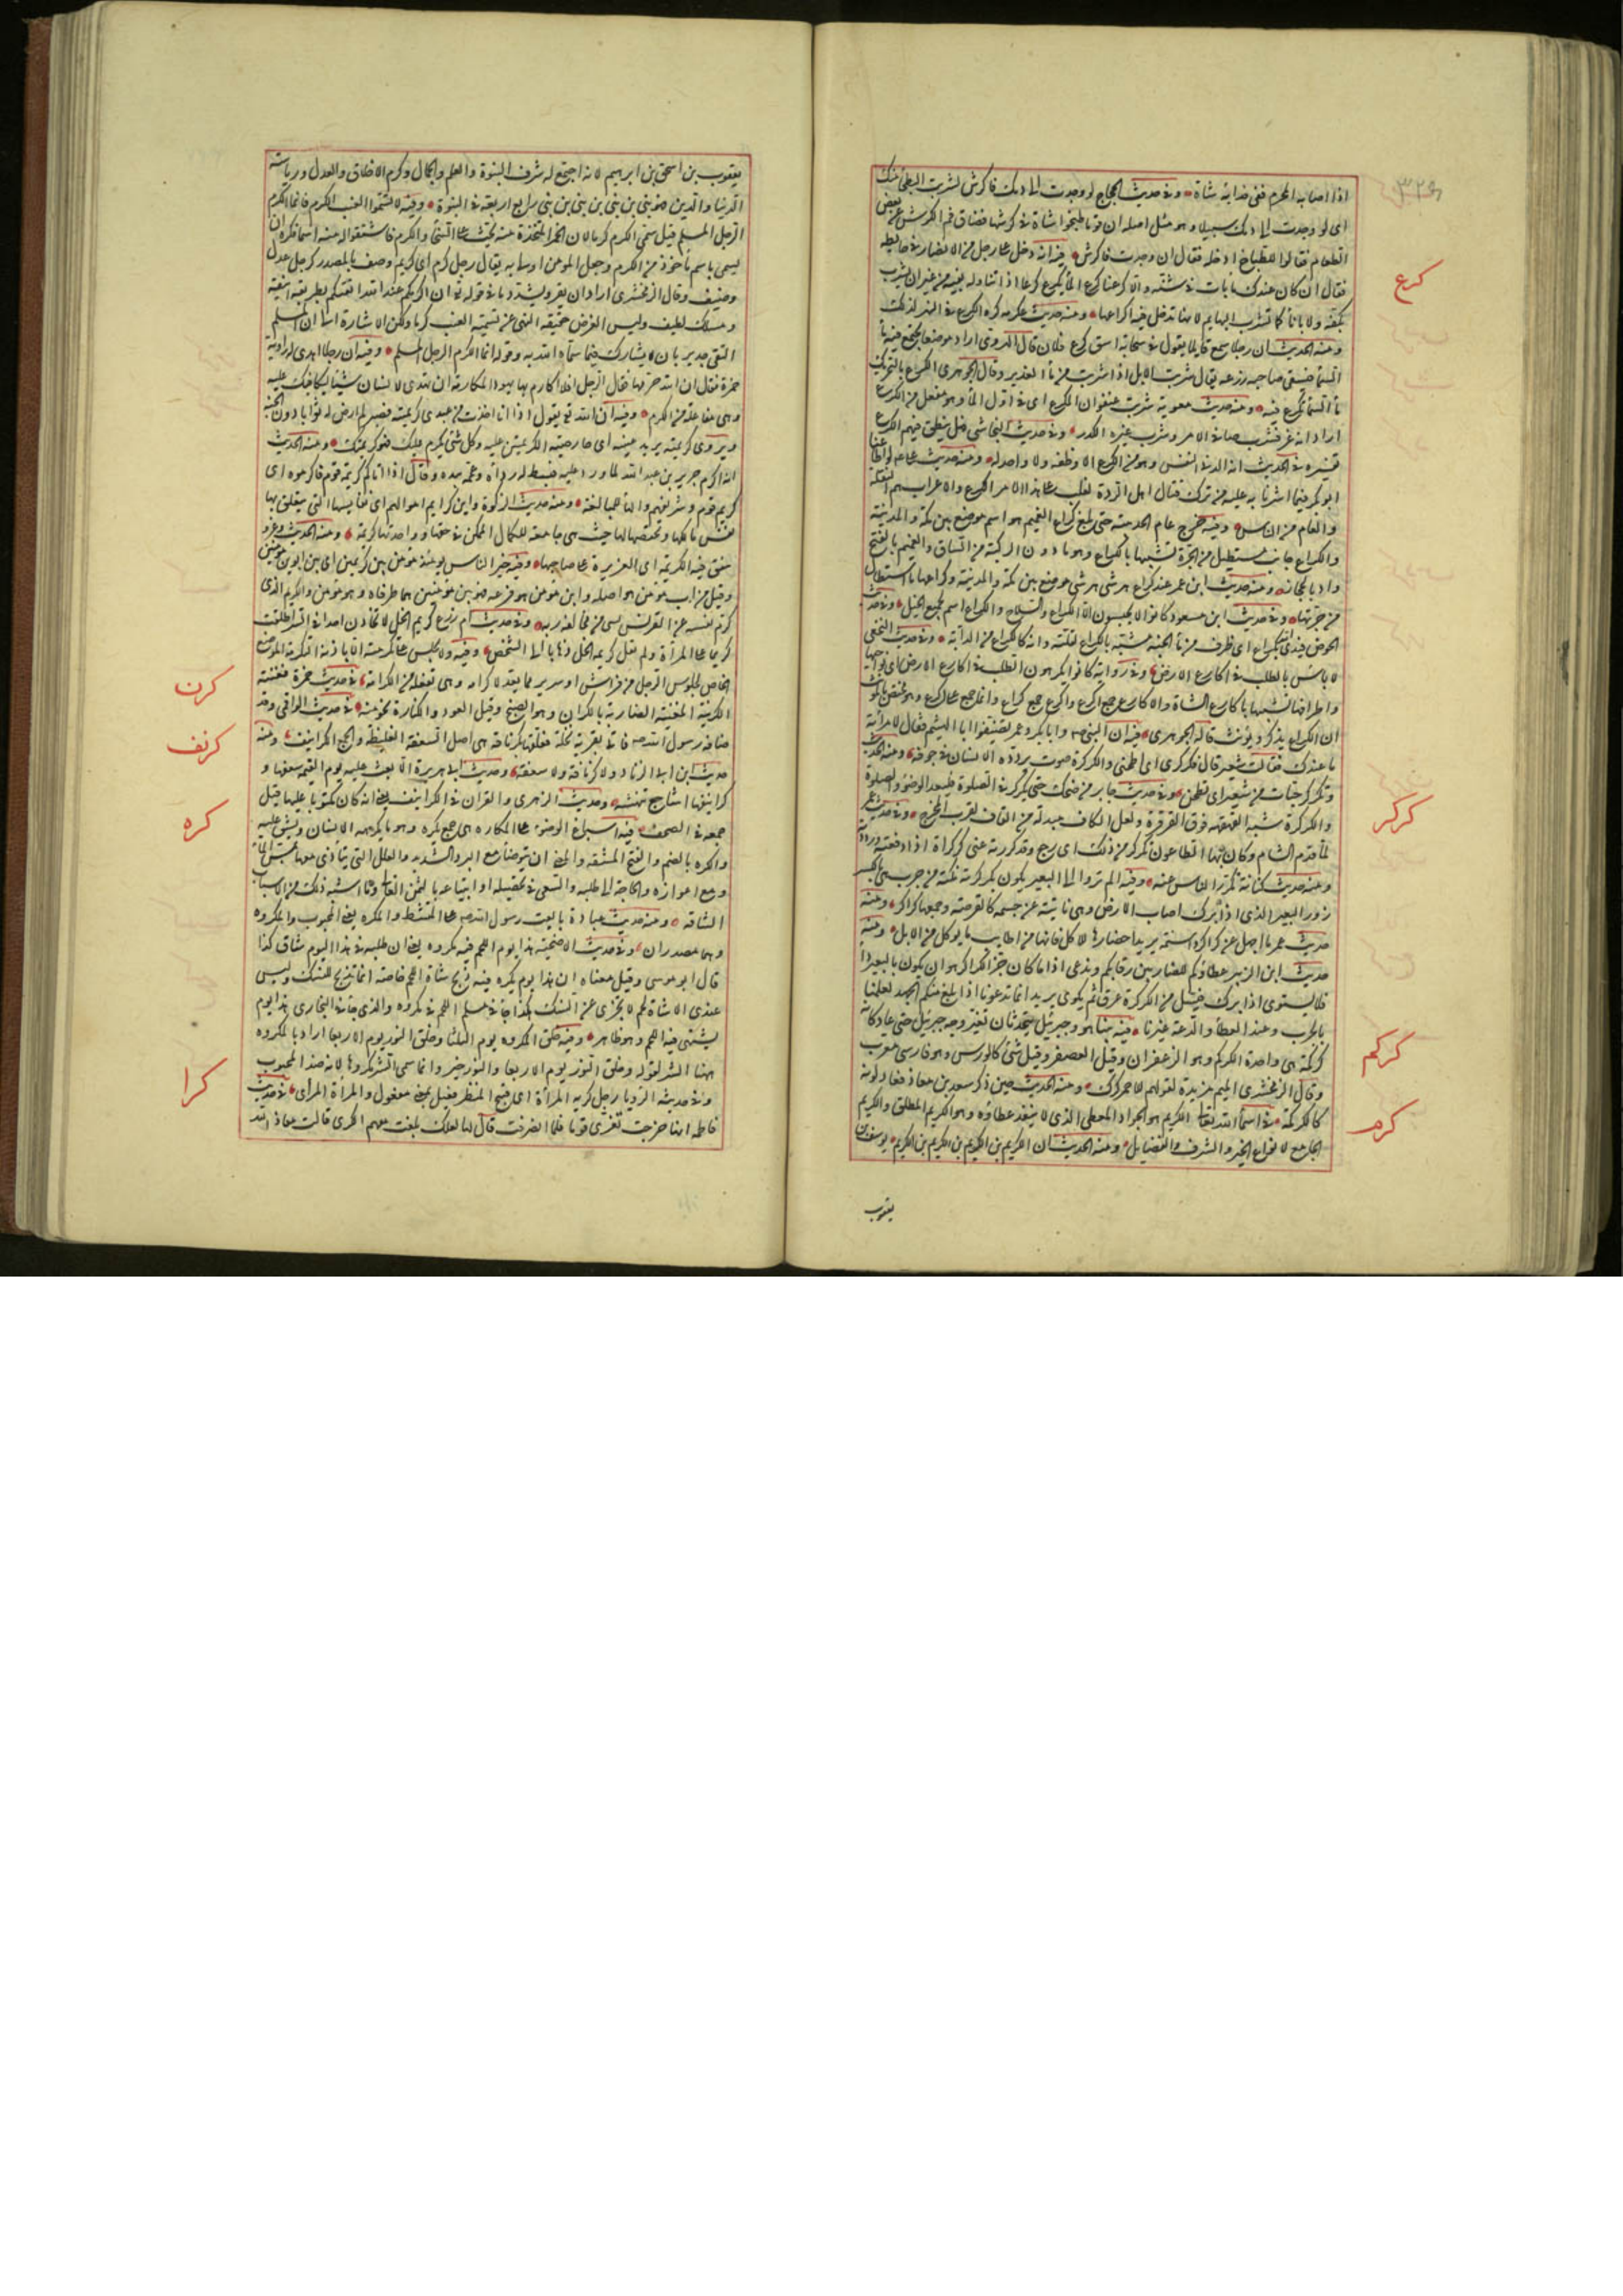 ٣٢٩
اذا اصابه المحرم ففى فدائه شاة وفى حديث الحجاج لو وجدت الى دمك فا كرش لشربت البطحا منك
اى لو وجدت الى دمك سبيلا وهو مثل اصله ان قوما طبخوا شاة فى كرشها فضاق فم الكرش عن بعض
الطعام فقالوا للطباخ ادخله فقال ان وجدت فاكرش فيه انه دخل على رجل من الانصار فى حايطه
كرع
فقال ان كان عندك ماء بات فى شنه والا كرعنا كرع الماء يكرع كرعا اذا تناوله بفيه من غير ان يشرب
بكفه ولا باناء كما تشرب البهايم لانها تدخل فيه اكارعها ومنه حديث عكرمه كره الكرع فى النهر لذلك
ومنه الحديث ان رجلا سمع قائلا يقول فى سحابة اسق كرع فلان قال الهروى اراد موضعا يجتمع فيه ماء
السماء فيسقى صاحبه زرعه يقال شربت الابل بالكرع اذا شربت من ماء الغدير وقال الجوهرى الكرع بالتحريك
ماء السماء يكرع فيه ومنه حديث معوية شربت عنفوان المكرع اى فى اول الماء وهو مفعل من الكرع
اراد انه عز فشرب صافى الامر وشرب غيره الكدر وفى حديث النجاشى فهل ينطق فيهم الكرع
تفسيره فى الحديث انه الدنى النفس وهو من الكرع الاوظفه ولا واحد له ومنه حديث على لو اطاعنا
ابو بكر فيما اشرنا به عليه من ترك قتال اهل الردة لغلب على هذا الامر الكرع والاعراب هم السفلة
والطغام من الناس وفيه خرج عام الحديبية حتى بلغ كراع الغميم هو اسم موضع بين مكة والمدينة
والكراع جانب مستطيل من الحرة تشبيها بالكراع وهو ما دون الركبة من الساق والغميم بالفتح
واد بالحجاز ومنه حديث ابن عمر عند كراع هرشى هرشى موضع بين مكة والمدينة وكراعها ما استطال
من حرتها وفى حديث ابن مسعود كانوا لا يحبسون الا الكراع والسلاح والكراع اسم لجميع الخيل وفى حديث
الحوض فبدا الله بكراع اى طرف من ماء الجنة مشبه بالكراع لقلته وانه كالكراع من الدابة وفى حديث النخعى
لا باس بالطلب فى اكارع الارض وفى رواية كانوا يكرهون الطلب فى اكارع الارض اى نواحيها
واطرافها تشبيها باكارع الشاة والاكارع جمع اكرع واكرع جمع كراع وانما جمع على اكرع وهو مختص بالمؤنث
لان الكراع يذكر ويؤنث قاله الجوهرى فيه ان النبى وابا بكر وعمر تضيفوا ابا الهيثم فقال لامراته
ما عندك فقالت شعير قال فكركرى اى اطحنى والكركرة صوت يردده الانسان فى جوفه ومنه الحديث
كركر
وتكركر حبات من شعير اى تطحن وفى حديث جابر من ضحك حتى يكركر فى الصلوة فليعد الوضوء والصلوة
والكركرة شبه القهقهة فوق القرقرة ولعل الكاف مبدلة من القاف لقرب المخرج وفى حديث عمر
لما قدم الشام وكان بها الطاعون تكركر من ذلك اى رجع وقد كركرته عنى كركرة اذا دفعته ورددته
ومنه حديث كنانة تكركر الناس عنه وفيه الم تروا الى البعير يكون بكركرته نكتة من جرب هى بالكسر
زور البعير الذى اذا برك اصاب الارض وهى ناتئة عن جسمه كالقرصة وجمعها كراكر ومنه
حديث عمر ما اجهل عن كراكر واسنمة يريد احضارها للاكل فانها من اطايب ما يوكل من الابل ومنه
حديث ابن الزبير عطاؤكم للضاربين رقابكم وندعى اذا ما كان حز الكراكر هو ان يكون بالبعير داء
فلا يستوى اذا برك فيسل من الكركرة عرق ثم يكوى يريد انما تدعونا اذا بلغ منكم الجهد لعلمنا
بالحرب وعند العطاء والدعة غيرنا فيه بينا هو وجبرئيل يتحدثان تغير وجه جبرئيل حتى عاد كانه
كركم
كركمة هى واحدة الكركم وهو الزعفران وقيل العصفر وقيل شئ كالورس وهو فارسى معرب
وقال الزمخشرى الميم مزيدة لقولهم للاحمر كرك ومنه الحديث حين ذكر سعد بن معاذ فعاد لونه
كرم
كالكركمة فى اسماء الله تعالى الكريم هو الجواد المعطى الذى لا ينفد عطاؤه وهو الكريم المطلق والكريم
الجامع لانواع الخير والشرف والفضايل ومنه الحديث ان الكريم بن الكريم بن الكريم بن الكريم يوسف بن
يعقوب
يعقوب بن اسحق بن ابرهيم لانه اجتمع له شرف النبوة والعلم والجمال وكرم الاخلاق والعدل ورياسة
الدنيا والدين فهو نبى بن نبى بن نبى بن نبى رابع اربعة فى النبوة وفيه لا تسموا العنب الكرم فانما الكرم
الرجل المسلم قيل سمى الكرم كرما لان الخمر المتخذة منه تحث على السخاء والكرم فاشتقوا له منه اسما فكره ان
يسمى باسم ماخوذ من الكرم وجعل المومن اولى به يقال رجل كرم اى كريم وصف بالمصدر كرجل عدل
وضيف وقال الزمخشرى اراد ان يقرر ويشدد ما فى قوله تع ان اكرمكم عند الله اتقيكم بطريقة انيقة
ومسلك لطيف وليس الغرض حقيقة النهى عن تسمية العنب كرما ولكن الاشارة الى ان المسلم
التقى جدير بان لا يشارك فيما سماه الله به وقوله انما الكرم الرجل المسلم وفيه ان رجلا اهدى له راوية
خمر فقال ان الله حرمها فقال الرجل افلا اكارم بها يهود المكارمة ان تهدى لانسان شيئا ليكافئك عليه
وهى مفاعلة من الكرم وفيه ان الله تع يقول اذا انا اخذت من عبدى كريمتيه فصبر لم ارض له ثوابا دون الجنة
ويروى كريمته يريد عينيه اى جارحتيه الكريمتين عليه وكل شئ يكرم عليك فهو كريمك ومنه الحديث
انه اكرم جرير بن عبد الله لما ورد عليه فبسط له رداه وعممه بيده وقال اذا اتاكم كريمة قوم فاكرموه اى
كريم قوم وشريفهم والهاء للمبالغة ومنه حديث الزكوة واتق كرايم اموالهم اى نفايسها التى يتعلق بها
نفس مالكها ويختصها لها حيث هى جامعة للكمال الممكن فى حقها وواحدتها كريمة ومنه الحديث وغزو
تنفق فيه الكريمة اى العزيزة على صاحبها وفيه خير الناس يومئذ مومن بين كريمين اى بين ابوين مومنين
وقيل بين اب مومن هو اصله وابن مومن هو فرعه فهو بين مومنين هما طرفاه وهو مومن والكريم الذى
كرم نفسه عن التدنس بشئ من مخالفة ربه وفى حديث ام زرع كريم الخل لا تخادن احدا فى السر اطلقت
كريما على المراة ولم تقل كريمة الخل ذهابا الى الشخص وفيه ولا يجلس على تكرمته الا باذنه التكرمة الموضع
الخاص لجلوس الرجل من فراش او سرير مما يعد لاكرامه وهى تفعلة من الكرامة فى حديث حمزة فغنته
كرن
الكرينة المغنية الضاربة بالكران وهو الصنج وقيل العود والكنارة نحو منه فى حديث الواقمى وقد
كرنف
ضافه رسول الله فاتى بقربته نخلة فعلقها بكرنافة هى اصل السعفة الغليظة والجمع الكرانيف ومنه
حديث ابن ابى الزناد ولا كرنافة ولا سعفة وحديث ابى هريرة الا بعث عليه يوم القيمة سعفها و
كرانيفها اشاجع تنهشه وحديث الزهرى والقران فى الكرانيف يعنى انه كان مكتوبا عليها قبل
كره
جمعه فى الصحف فيه اسباغ الوضوء على المكاره هى جمع مكره وهو ما يكرهه الانسان ويشق عليه
والكره بالضم والفتح المشقة والمعنى ان يتوضأ مع البرد الشديد والعلل التى يتاذى معها بمس الماء
ومع اعوازه والحاجة الى طلبه والسعى فى تحصيله او ابتياعه بالثمن الغالى وما اشبه ذلك من الاسباب
الشاقة ومنه حديث عبادة بايعت رسول الله على المنشط والمكره يعنى المحبوب والمكروه
وهما مصدران وفى حديث الاضحية هذا يوم اللحم فيه مكروه يعنى ان طلبه فى هذا اليوم شاق كذا
قال ابو موسى وقيل معناه ان هذا يوم يكره فيه ذبح شاة اللحم خاصة انما تذبح للنسك وليس
عندى الا شاة لحم لا تجزى عن النسك هكذا جاء فى مسلم اللحم فيه مكروه والذى جاء فى البخارى هذا يوم
يشتهى فيه اللحم وهو ظاهر وفيه خلق المكروه يوم الثلثا وخلق النور يوم الاربعا اراد بالمكروه
كرا
ههنا الشر لقوله وخلق النور يوم الاربعا والنور خير وانما سمى الشر مكروها لانه ضد المحبوب
وفى حديث الرؤيا رجل كريه المرآة اى قبيح المنظر فعيل بمعنى مفعول والمرآة المرأى فى حديث
فاطمة انها خرجت تعزى قوما فلما انصرفت قال لها لعلك بلغت معهم الكرى قالت معاذ الله